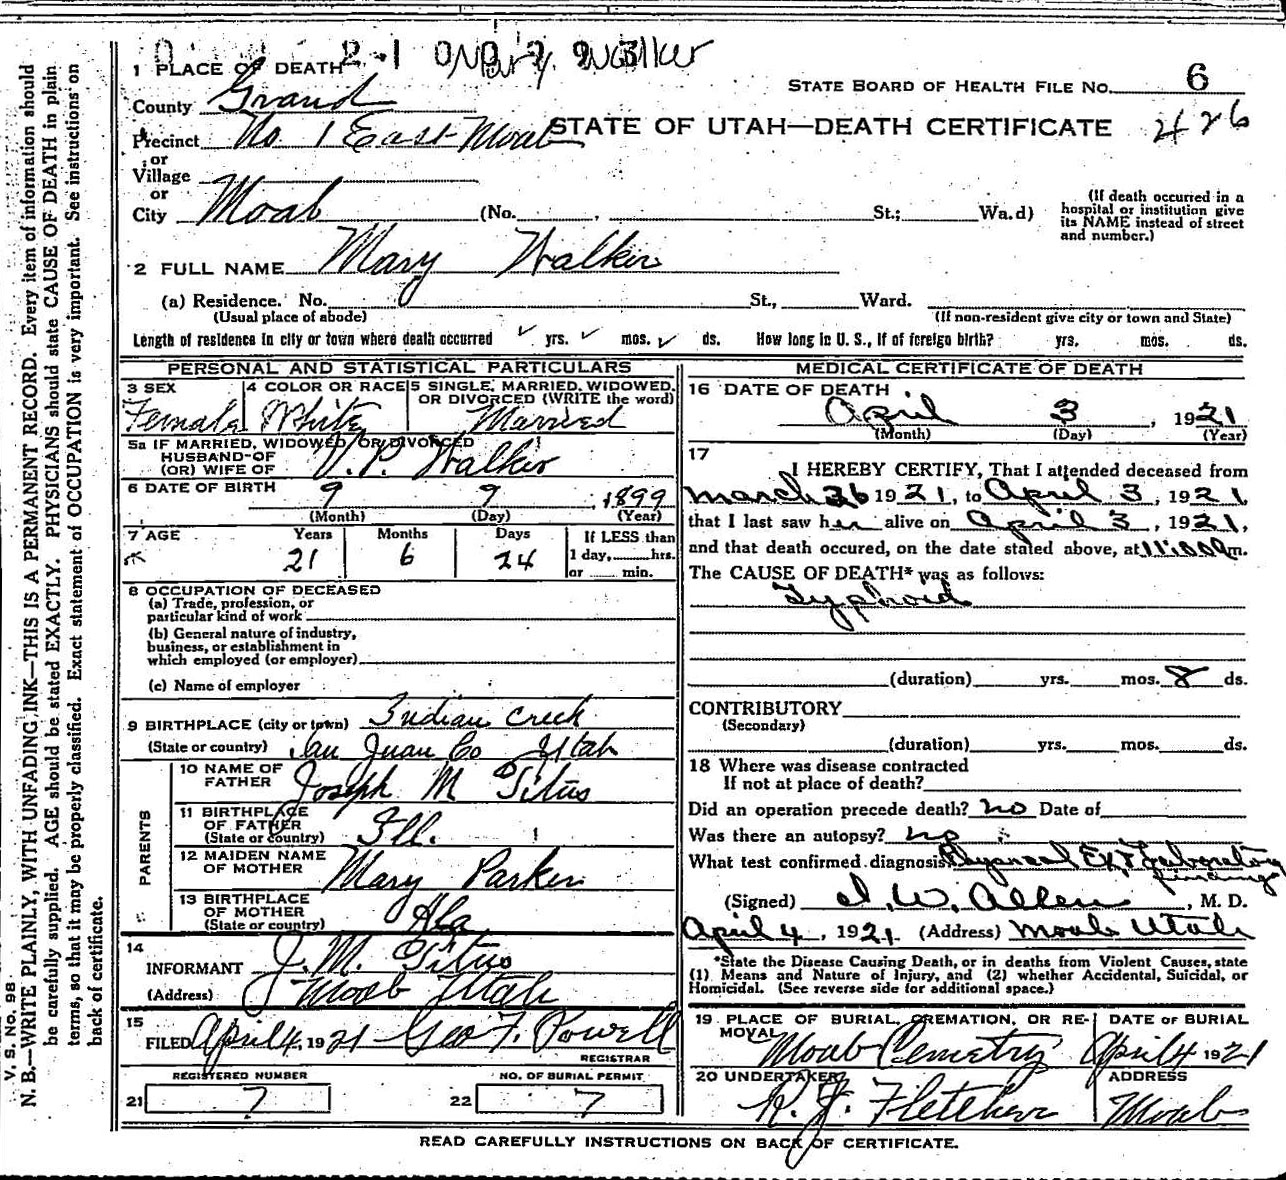 Mary Walker
1 PLACE OF DEATH
STATE BOARD OF HEALTH FILE NO. 6
County Grand
426
Precinct No. 1 East Moab
STATE OF UTAH—DEATH CERTIFICATE
or
Village
or
City Moab (No. , St.; Wa.d)
(If death occurred in a
hospital or institution give
its NAME instead of street
and number.)
2 FULL NAME Mary Walker
(a) Residence. No. St., Ward.
(Usual place of abode) (If non-resident give city or town and State)
Length of residence in city or town where death occurred ✓ yrs. ✓ mos. ✓ ds. How long in U. S., if of foreign birth? yrs. mos. ds.
PERSONAL AND STATISTICAL PARTICULARS
3 SEX 4 COLOR OR RACE 5 SINGLE, MARRIED, WIDOWED,
OR DIVORCED (WRITE the word)
Female White Married
5a IF MARRIED, WIDOWED, OR DIVORCED
HUSBAND OF
(OR) WIFE OF V. P. Walker
6 DATE OF BIRTH 9 9 , 1899
(Month) (Day) (Year)
7 AGE Years Months Days If LESS than
21 6 24 1 day, hrs.
or min.
8 OCCUPATION OF DECEASED
(a) Trade, profession, or
particular kind of work
(b) General nature of industry,
business, or establishment in
which employed (or employer)
(c) Name of employer
9 BIRTHPLACE (city or town) Indian Creek
(State or country) San Juan Co Utah
PARENTS
10 NAME OF
FATHER Joseph M Titus
11 BIRTHPLACE
OF FATHER
(State or country) Ill.
12 MAIDEN NAME
OF MOTHER Mary Parker
13 BIRTHPLACE
OF MOTHER
(State or country) Ala
14
INFORMANT J. M. Titus
(Address) Moab Utah
15
FILED April 4, 1921 Geo F. Powell
REGISTRAR
REGISTERED NUMBER NO. OF BURIAL PERMIT
21 7 22 7
MEDICAL CERTIFICATE OF DEATH
16 DATE OF DEATH
April 3 , 1921
(Month) (Day) (Year)
17
I HEREBY CERTIFY, That I attended deceased from
March 26 1921, to April 3, 1921,
that I last saw her alive on April 3, 1921,
and that death occured, on the date stated above, at m.
The CAUSE OF DEATH* was as follows:
Typhoid
(duration) yrs. mos. 8 ds.
CONTRIBUTORY
(Secondary)
(duration) yrs. mos. ds.
18 Where was disease contracted
If not at place of death?
Did an operation precede death? no Date of
Was there an autopsy? no
What test confirmed diagnosis Physical Ex & Laboratory
findings
(Signed) I. W. Allen , M. D.
April 4, 1921 (Address) Moab Utah
*State the Disease Causing Death, or in deaths from Violent Causes, state
(1) Means and Nature of Injury, and (2) whether Accidental, Suicidal, or
Homicidal. (See reverse side for additional space.)
19 PLACE OF BURIAL, CREMATION, OR RE- DATE OF BURIAL
MOVAL
Moab Cemetry April 4 1921
20 UNDERTAKER ADDRESS
R. J. Fletcher Moab
READ CAREFULLY INSTRUCTIONS ON BACK OF CERTIFICATE.
V. S. No. 98
N. B.—WRITE PLAINLY, WITH UNFADING INK—THIS IS A PERMANENT RECORD. Every item of information should
be carefully supplied. AGE should be stated EXACTLY. PHYSICIANS should state CAUSE OF DEATH in plain
terms, so that it may be properly classified. Exact statement of OCCUPATION is very important. See instructions on
back of certificate.